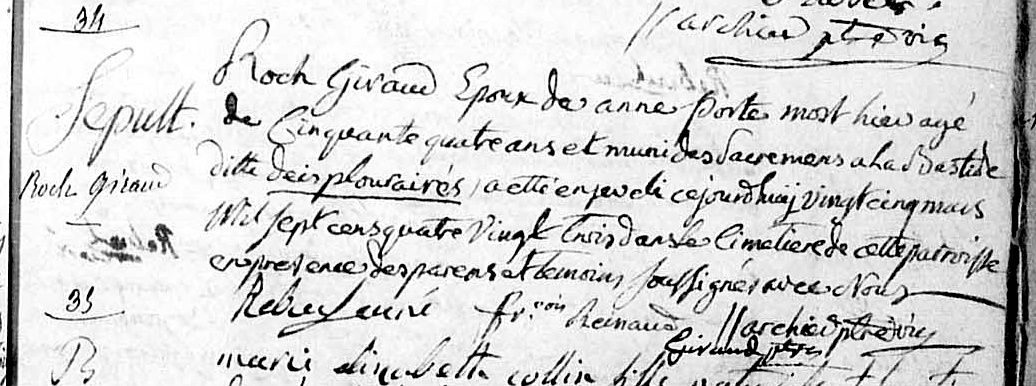 34
Marchier ptre vic
Sepult.
Roch Giraud
Roch Giraud Epoux de anne Porte mort hier agé
de Cinquante quatre ans et muni des Sacremens a La Bastide
ditte deis plouraires, a etté enseveli cejourdhuij vingt cinq mars
Mil Sept cens quatre Vingt trois dans Le Cimetiere de cette parroisse
en presence des parens et temoins Soussignés avec Nous
35
fr.çois Reinaud Marchier ptre vic
Giraud ptre
B
marie elizabeth collin fille